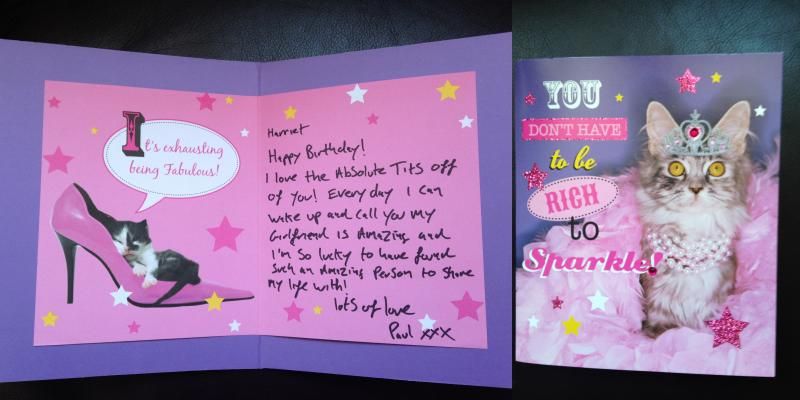 It's exhausting
being Fabulous!
Harriet
Happy Birthday!
I love the Absolute Tits off
of you! Every day I can
wake up and call you my
Girlfriend is Amazing and
I'm so lucky to have found
such an Amazing Person to share
my life with!
lots of love
Paul xxx
YOU
DON'T HAVE
to be
RICH
to
Sparkle!